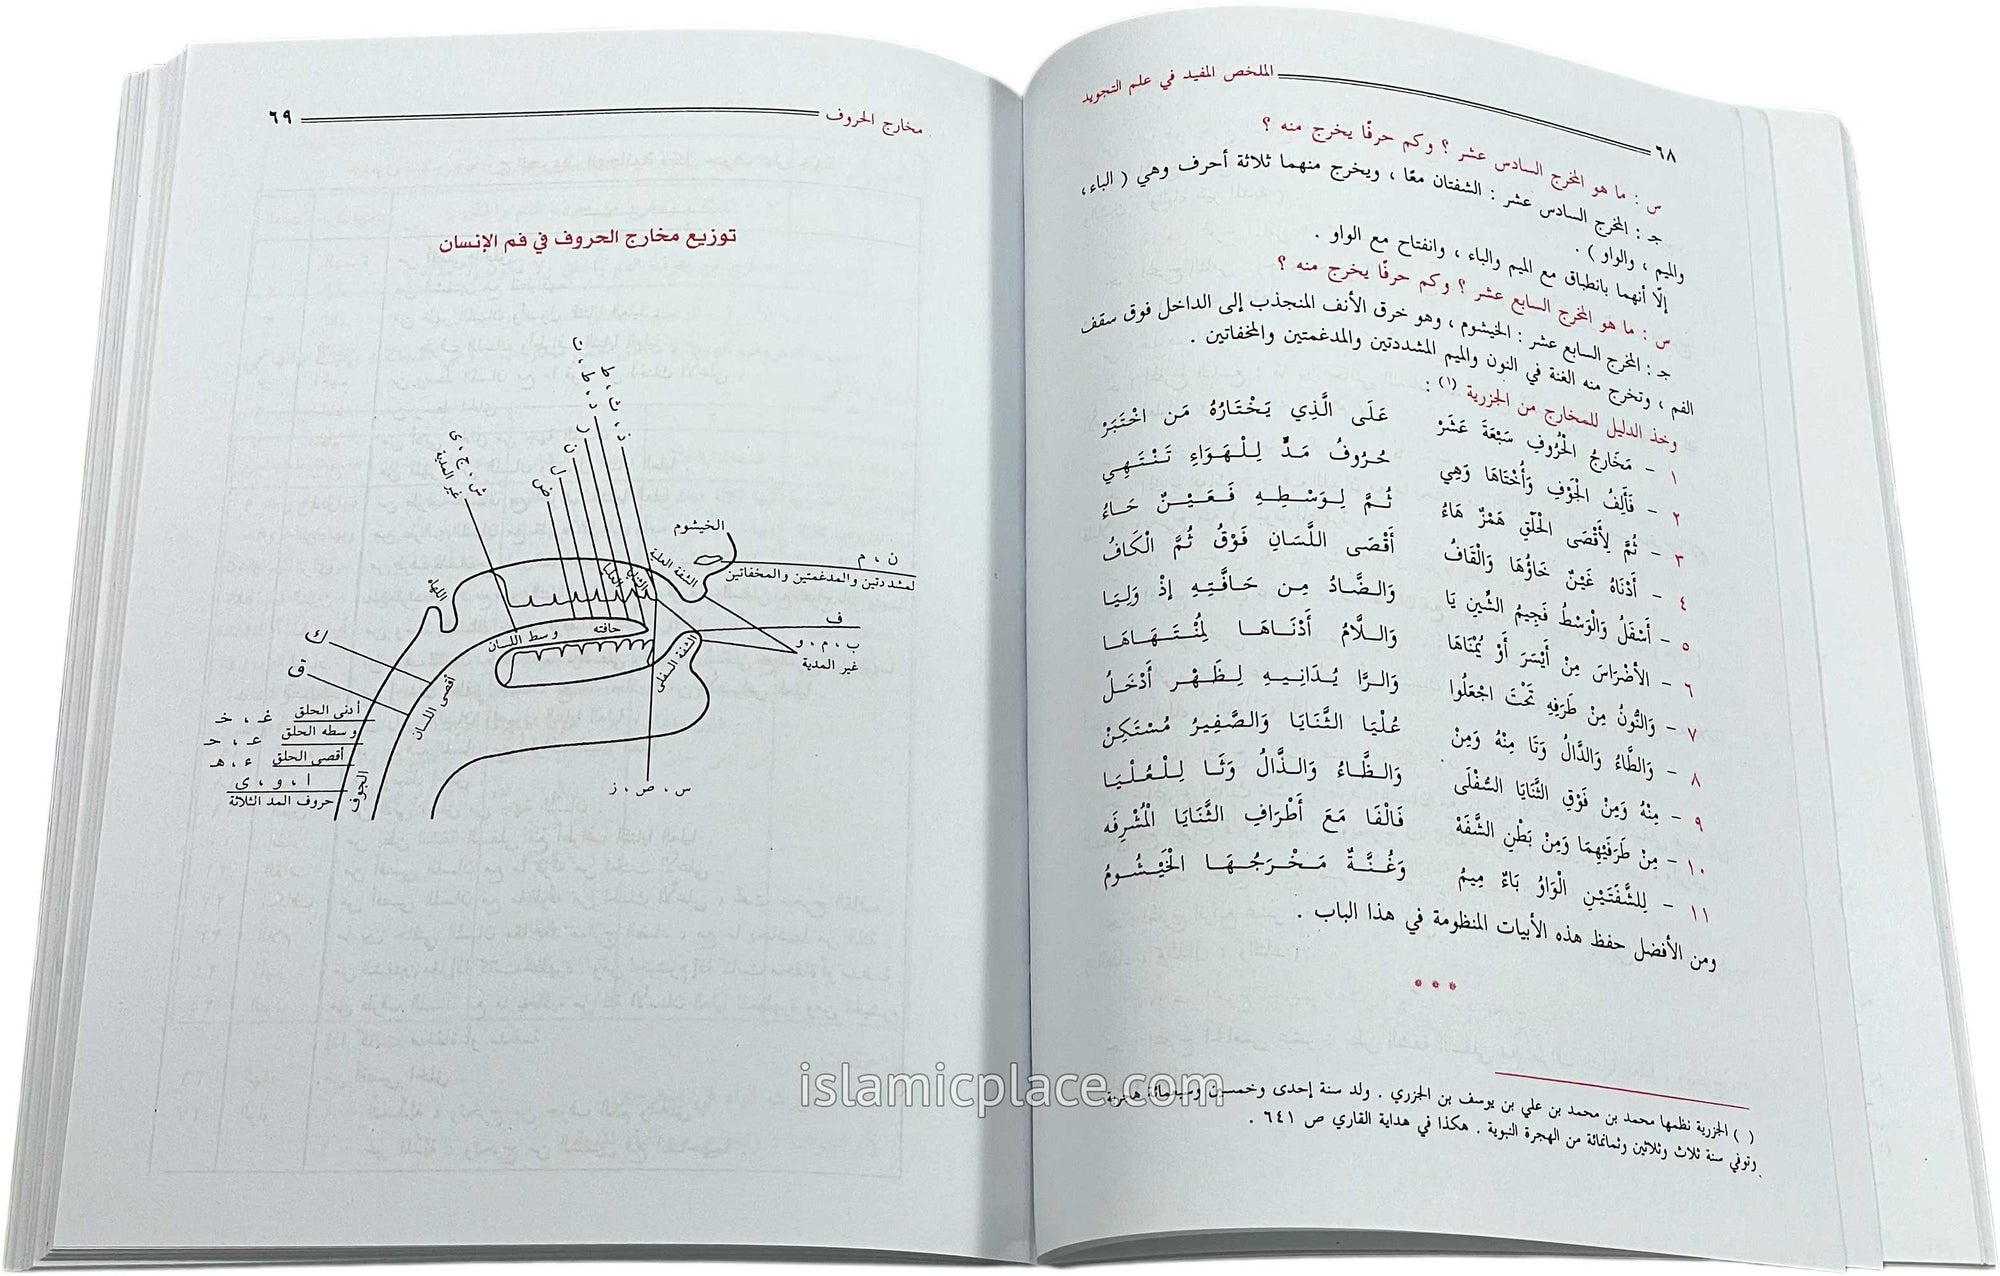 الملخص المفيد في علم التجويد
٦٨
س : ما هو المخرج السادس عشر ؟ وكم حرفًا يخرج منه ؟
جـ : المخرج السادس عشر : الشفتان معًا ، ويخرج منهما ثلاثة أحرف وهي ( الباء ،
والميم ، والواو ) .
إلّا أنهما بانطباق مع الميم والباء ، وانفتاح مع الواو .
س : ما هو المخرج السابع عشر ؟ وكم حرفًا يخرج منه ؟
جـ : المخرج السابع عشر : الخيشوم ، وهو خرق الأنف المنجذب إلى الداخل فوق سقف
الفم ، وتخرج منه الغنة في النون والميم المشددتين والمدغمتين والمخفاتين .
وخذ الدليل للمخارج من الجزرية (١) :
١ - مَخَارِجُ الْحُرُوفِ سَبْعَةَ عَشَرْ عَلَى الَّذِي يَخْتَارُهُ مَن اخْتَبَرْ
٢ - فَأَلِفُ الْجَوْفِ وَأُخْتَاهَا وَهِي حُرُوفُ مَدٍّ لِلْهَوَاءِ تَنْتَهِي
٣ - ثُمَّ لِأَقْصَى الْحَلْقِ هَمْزٌ هَاءُ ثُمَّ لِوَسْطِهِ فَعَيْنٌ حَاءُ
٤ - أَدْنَاهُ غَيْنٌ خَاؤُهَا وَالْقَافُ أَقْصَى اللِّسَانِ فَوْقُ ثُمَّ الْكَافُ
٥ - أَسْفَلُ وَالْوَسْطُ فَجِيمُ الشِّينِ يَا وَالضَّادُ مِن حَافَّتِهِ إذْ وَلِيَا
٦ - الأضْرَاسَ مِنْ أَيْسَرَ أَوْ يُمْنَاهَا وَاللَّامُ أَدْنَاهَا لِمُنْتَهَاهَا
٧ - وَالنُّونُ مِنْ طَرَفِهِ تَحْتَ اجْعَلُوا وَالرَّا يُدَانِيهِ لِظَهْرٍ أَدْخَلُ
٨ - وَالطَّاءُ وَالدَّالُ وَتَا مِنْهُ وَمِنْ عُلْيَا الثَّنَايَا وَالصَّفِيرُ مُسْتَكِنْ
٩ - مِنْهُ وَمِنْ فَوْقِ الثَّنَايَا السُّفْلَى وَالظَّاءُ وَالذَّالُ وَثَا لِلْعُلْيَا
١٠ - مِنْ طَرَفَيْهِمَا وَمِنْ بَطْنِ الشَّفَهْ فَالْفَا مَعَ أَطْرَافِ الثَّنَايَا الْمُشْرِفَه
١١ - لِلشَّفَتَيْنِ الْوَاوُ بَاءٌ مِيمُ وَغُنَّةٌ مَخْرَجُهَا الْخَيْشُومُ
ومن الأفضل حفظ هذه الأبيات المنظومة في هذا الباب .
( ) الجزرية نظمها محمد بن محمد بن علي بن يوسف بن الجزري . ولد سنة إحدى وخمسين وسبعمائة هجرية
وتوفي سنة ثلاث وثلاثين وثمانمائة من الهجرة النبوية . هكذا في هداية القاري ص ٦٤١ .
مخارج الحروف
٦٩
توزيع مخارج الحروف في فم الإنسان
ظ ، ث ، ذ
د ، ط ، ت
ر
ن
ل
ض
ش ، ج ، ى
غير المدية
الخيشوم
ن ، م
لمشددتين والمدغمتين والمخفاتين
الشفة العليا
الثنايا
العليا
اللهاة
ف
ب ، م ، و
غير المدية
الشفة السفلى
حافته
وسط اللسان
أقصى اللسان
ك
ق
أدنى الحلق
غـ ، خـ
وسطه الحلق
عـ ، حـ
أقصى الحلق
ء ، هـ
ا ، و ، ى
حروف المد الثلاثة
الجوف
س ، ص ، ز
islamicplace.com